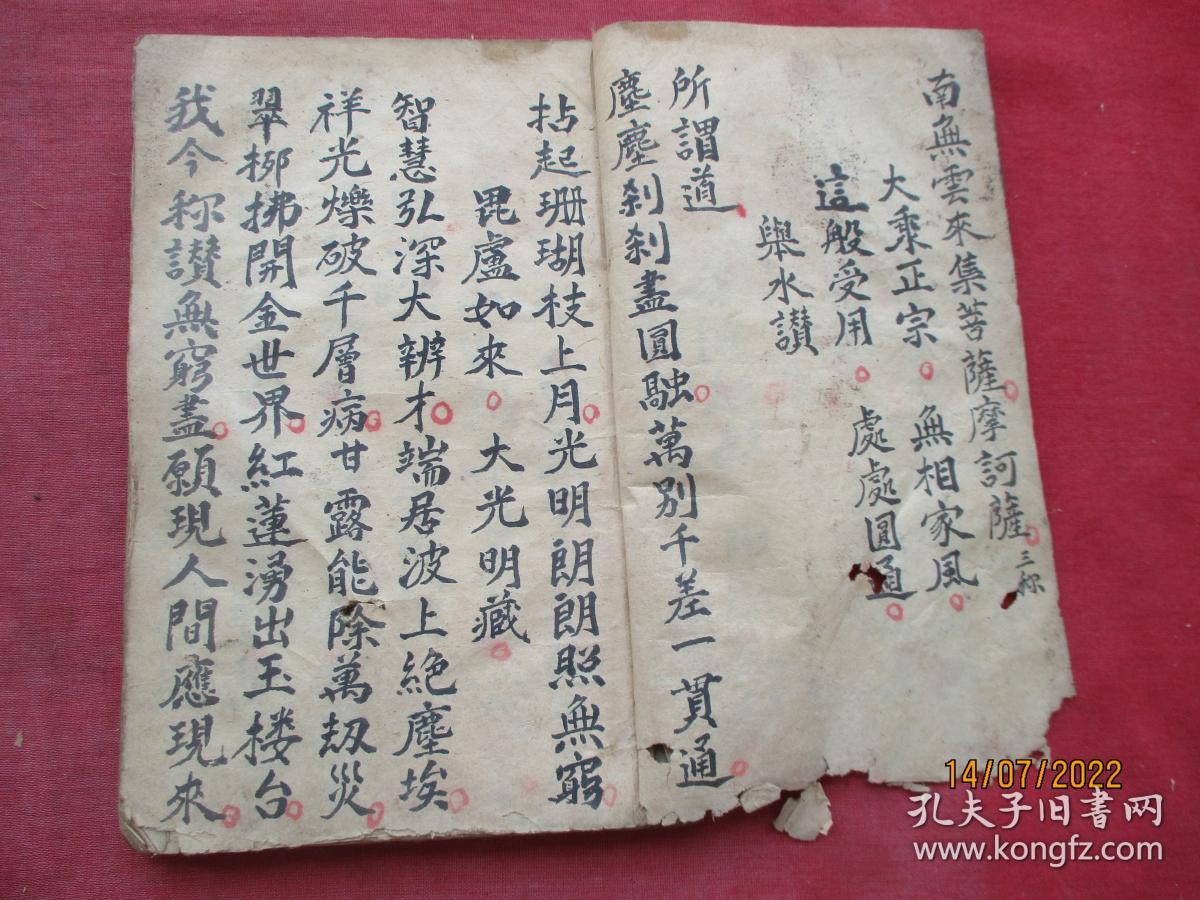 南無雲來集菩薩摩訶薩三称
大乘正宗。無相家風。
這般受用。處處圓通。
舉水讃
所謂道
塵塵刹刹盡圓融。萬別千差一貫通。
拈起珊瑚枝上月。光明朗朗照無窮。
毘盧如來。大光明藏。
智慧弘深大辨才。端居波上絶塵埃。
祥光爍破千層病。甘露能除萬劫災。
翠栁拂開金世界。紅蓮湧出玉楼台。
我今称讃無窮盡。願現人間應現來。
14/07/2022
孔夫子旧书网
www.kongfz.com